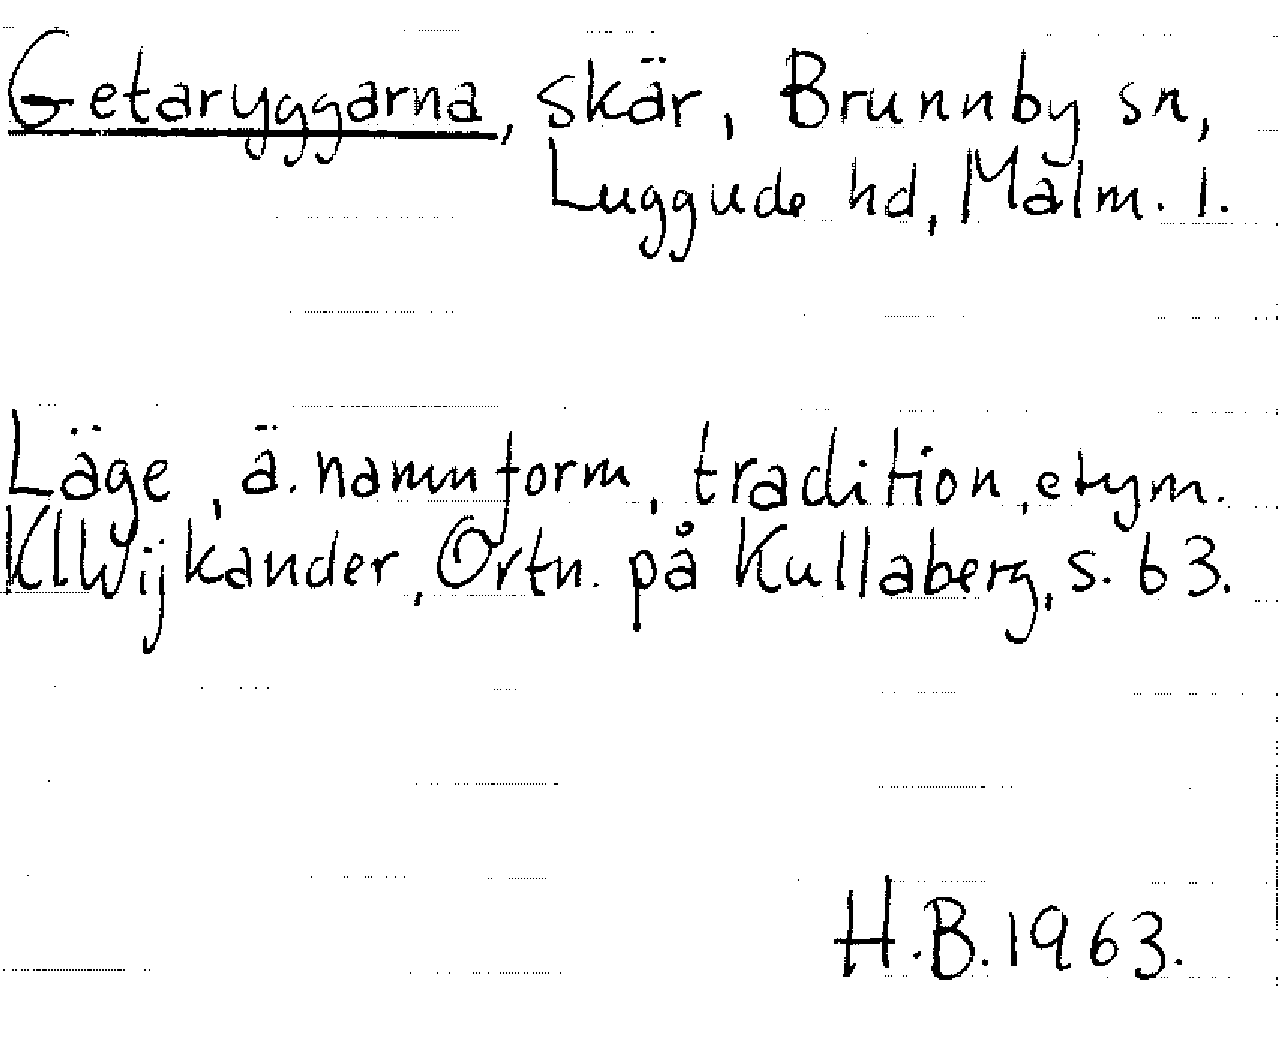 Getaryggarna, skär, Brunnby sn,
Luggude hd, Malm. l.
Läge, ä. namnform, tradition, etym.
KlWijkander, Ortn. på Kullaberg, s. 63.
H.B. 1963.